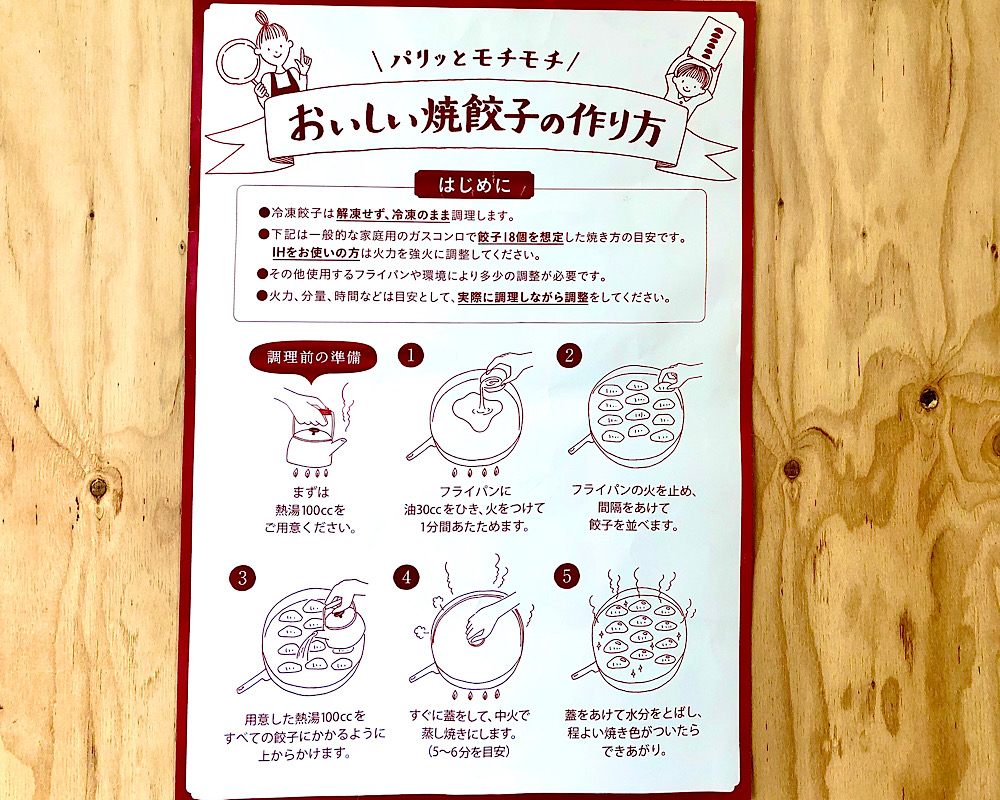 パリッとモチモチ
おいしい焼餃子の作り方
はじめに
●冷凍餃子は解凍せず、冷凍のまま調理します。
●下記は一般的な家庭用のガスコンロで餃子18個を想定した焼き方の目安です。
IHをお使いの方は火力を強火に調整してください。
●その他使用するフライパンや環境により多少の調整が必要です。
●火力、分量、時間などは目安として、実際に調理しながら調整をしてください。
調理前の準備
まずは
熱湯100ccを
ご用意ください。
1
フライパンに
油30ccをひき、火をつけて
1分間あたためます。
2
フライパンの火を止め、
間隔をあけて
餃子を並べます。
3
用意した熱湯100ccを
すべての餃子にかかるように
上からかけます。
4
すぐに蓋をして、中火で
蒸し焼きにします。
(5〜6分を目安)
5
蓋をあけて水分をとばし、
程よい焼き色がついたら
できあがり。